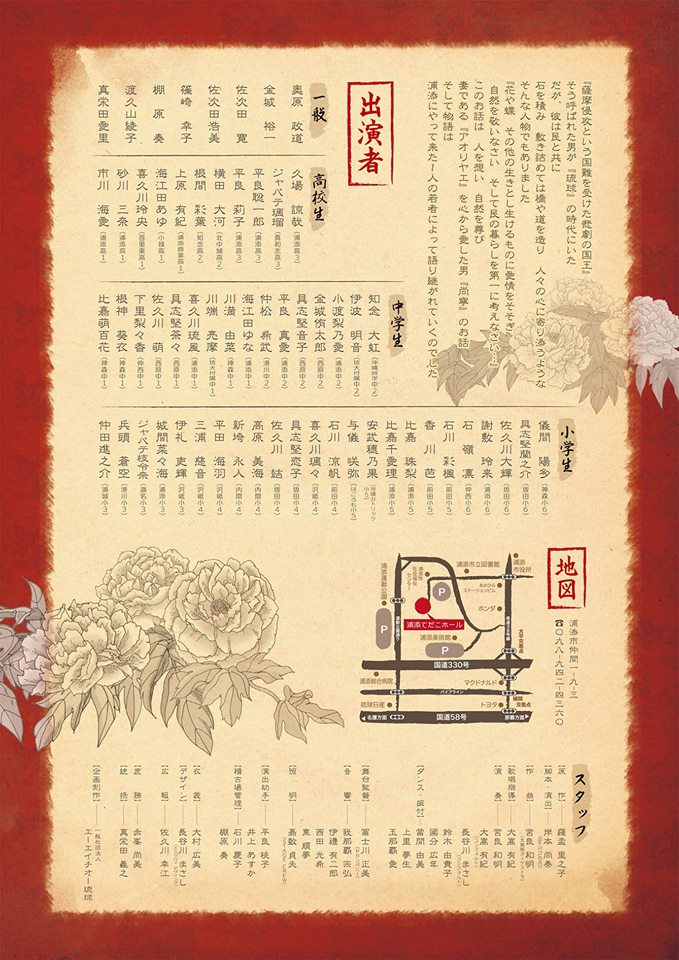 『薩摩侵攻という国難を受けた悲劇の国王』
そう呼ばれた男が『琉球』の時代にいた
だが 彼は民と共に
石を積み 敷き詰めては橋や道を造り 人々の心に寄り添うような
そんな人物でもありました
『花や蝶 その他の生きとし生けるものに愛情をそそぎ
自然を敬いなさい そして民の暮らしを第一に考えなさい…』
このお話は 人を想い 自然を尊び
妻である『アオリヤエ』を心から愛した男『尚寧』のお話
そして物語は
浦添にやって来た1人の若者によって語り継がれていくのでした
出演者
一般
奥原 政道
金城 裕一
佐次田 寛
佐次田浩美
篠崎 幸子
棚原 奏
渡久山綾子
真栄田愛里
高校生
久場 諒哉（浦添高3）
ジャバテ璃瑠（真和志高3）
平良聡一郎（浦添高3）
平良 莉子（浦添高2）
横田 大河（北中城高2）
根間 彩葉（知念高2）
上原 有紀（浦添商業高1）
海江田あゆ（小禄高1）
喜久川玲央（首里東高1）
砂川 三奈（浦添高1）
市川 海愛（浦添高1）
中学生
知念 大虹（沖縄尚学中2）
伊波 明音（琉大付属中2）
小渡梨乃愛（浦添中2）
金城侑太郎（西原中2）
具志堅音子（西原中2）
平良 真愛（浦添中2）
仲松 希武（港川中2）
海江田ゆな（浦添中1）
川満 由菜（神森中1）
川端 亮摩（琉大付属中1）
喜久川琉風（浦添中1）
具志堅茶々（西原中1）
佐久川 萌（西原中1）
下里梨々香（仲西中1）
根神 葵衣（神森中1）
比嘉萌百花（神森中1）
小学生
儀間 陽多（神森小6）
具志堅蘭之介（坂田小6）
佐久川大輝（坂田小6）
謝敷 玲来（浦添小6）
石嶺 凛（仲西小6）
石川 彩楓（前田小5）
香川 芭（前田小5）
比嘉 珠梨（浦添小5）
比嘉千愛理（浦添小5）
安武穂乃果（沖縄カトリック小5）
与儀 咲弥（はごろも小5）
石川 涼帆（前田小4）
喜久川璃々（浦添小4）
具志堅恋子（坂田小4）
佐久川 結（坂田小4）
高原 美海（内間小4）
新埼 永人（内間小4）
平田 海羽（沢岻小4）
三浦 慈音（沢岻小4）
伊礼 吏輝（沢岻小3）
城間菜々海（浦添小3）
ジャバテ枝令奈（識名小3）
兵頭 蒼空（港川小3）
仲田進之介（浦城小3）
地図
浦添市仲間一-九-三
☎〇九八-九四二-四三六〇
浦添市役所
浦添市立図書館
浦添市社会福祉センター
あかひらステーションビル
浦添運動公園
ホンダ
P
P
P
浦添てだこホール
浦添美術館
大平交差点
国道330号
浦添総合病院
マクドナルド
パイプライン
琉球日産
トヨタ
名護方面
国道58号
那覇方面
スタッフ
［原作］羅孟 里之子
［脚本・演出］岸本 尚泰
［作曲］宮良 和明
［歌唱指導］大嵩 有妃
［演奏］宮良 和明
大嵩 有妃
長谷川 まさし
［ダンス・振付］鈴木 由貴子
國分 広年
當間 由美
上里 夢生
玉那覇 愛
［舞台監督］富士川 正美
［音響］我那覇 宗弘
［照明］伊禮 有二郎
西田 光希
東 順夢
嘉数 貞夫
［演出助手］平良 桃子
井上 あすか
［稽古場管理］石川 慶子
棚原 奏
［衣裳］大村 広美
［デザイン］長谷川 まさし
［広報］佐久川 幸江
［庶務］赤嶺 尚美
［統括］真栄田 義之
［企画制作］一般社団法人
エーエイチオー琉球